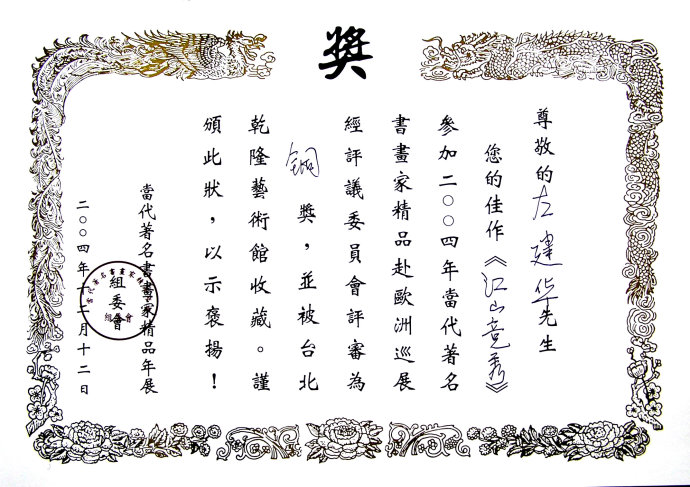 獎
尊敬的左建华先生
您的佳作《江山竞秀》
參加二〇〇四年當代著名
書畫家精品赴歐洲巡展
經評議委員會評審為
铜獎，並被台北
乾隆藝術館收藏。謹
頒此狀，以示褒揚！
當代著名書畫家精品年展
組委會
二〇〇四年十二月十二日